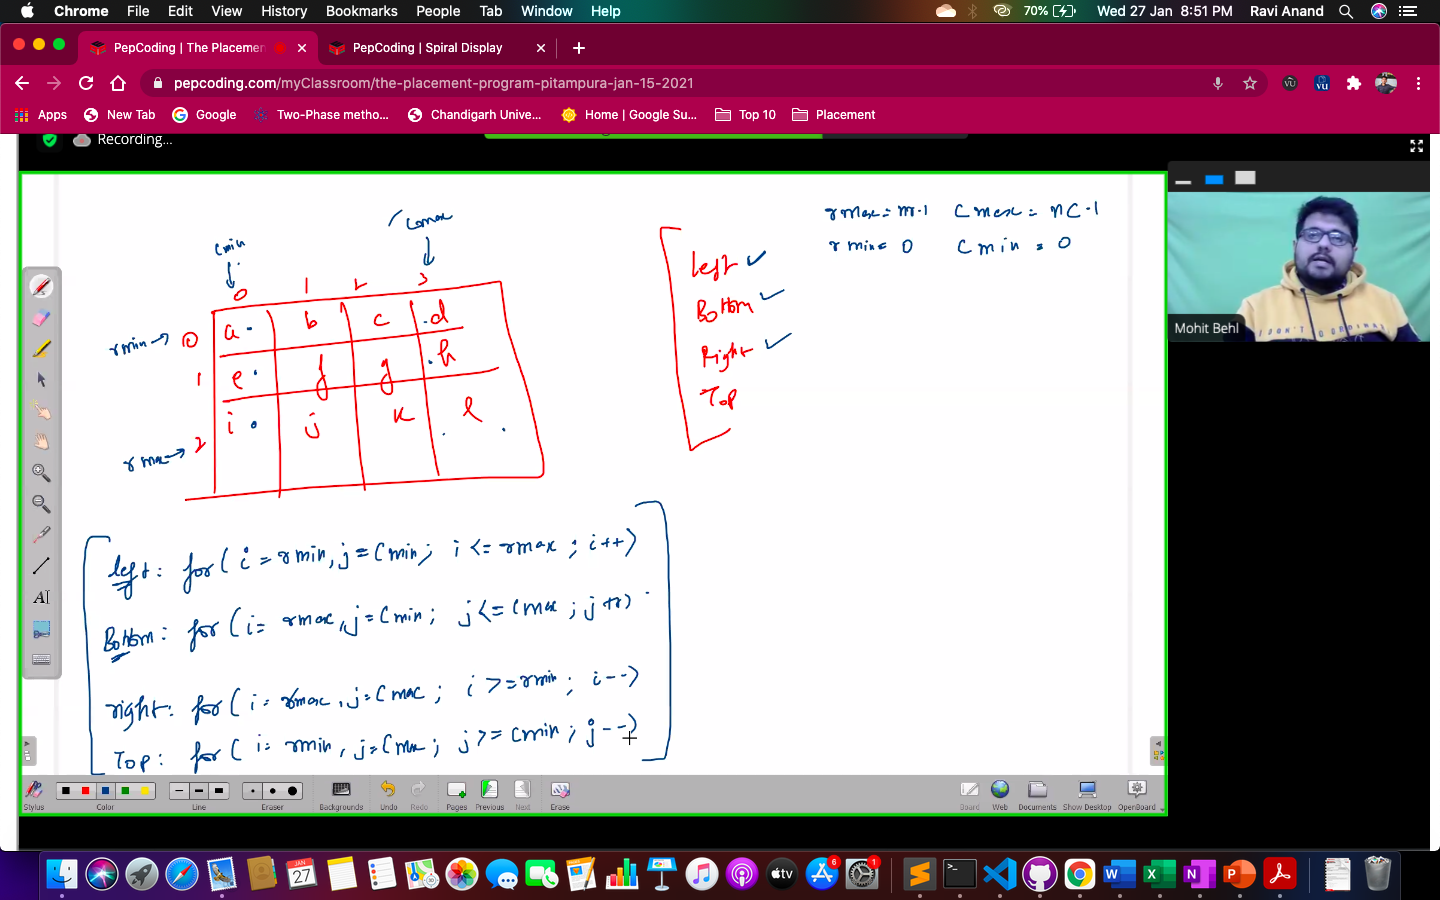 Chrome File Edit View History Bookmarks People Tab Window Help 70% Wed 27 Jan 8:51 PM Ravi Anand
PepCoding | The Placemen
PepCoding | Spiral Display
pepcoding.com/myClassroom/the-placement-program-pitampura-jan-15-2021
Apps New Tab Google Two-Phase metho... Chandigarh Unive... Home | Google Su... Top 10 Placement
Recording...
rmax = nr-1 cmax = nc-1
rmin = 0 cmin = 0
cmin
cmax
0 1 2 3
rmin → 0 a b c d
1 e f g h
rmax → 2 i j k l
Left ✓
Bottom ✓
Right ✓
Top
Mohit Behl
left: for( i = rmin, j = cmin; i <= rmax ; i++)
Bottom: for( i= rmax, j=cmin; j <= cmax ; j++)
right: for( i= rmax, j=cmax ; i >= rmin; i--)
Top: for( i= rmin, j=cmax; j >= cmin ; j--)
Stylus Color Line Eraser Backgrounds Undo Redo Pages Previous Next Erase Board Web Documents Show Desktop OpenBoard
JAN 27 tv 6 1 W X N P